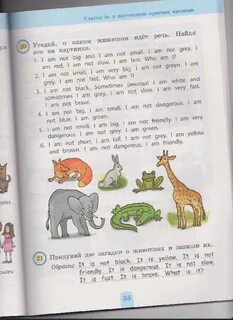 Глагол be в настоящем простом времени
20 Угадай, о каком животном идёт речь. Найди
его на картинке.
1. I am not big and I am not small. I am not grey. I
am red. I am not slow. I am fast. Who am I?
2. I am not small. I am very big. I am not green. I am
grey. I am not fast. Who am I?
3. I am not black. Sometimes (иногда) I am white and
sometimes I am grey. I am not slow. I am very fast.
4. I am not big. I am small. I am not dangerous. I am
not blue. I am green.
5. I am not small. I am big. I am not brave. I am very
dangerous. I am not grey. I am green.
6. I am not short. I am tall. I am not grey. I am yellow
and brown. I am not dangerous. I am friendly.
21 Придумай две загадки о животных и запиши их.
Образец: It is not black. It is yellow. It is not
friendly. It is dangerous. It is not slow.
It is fast. It is brave. What is it?